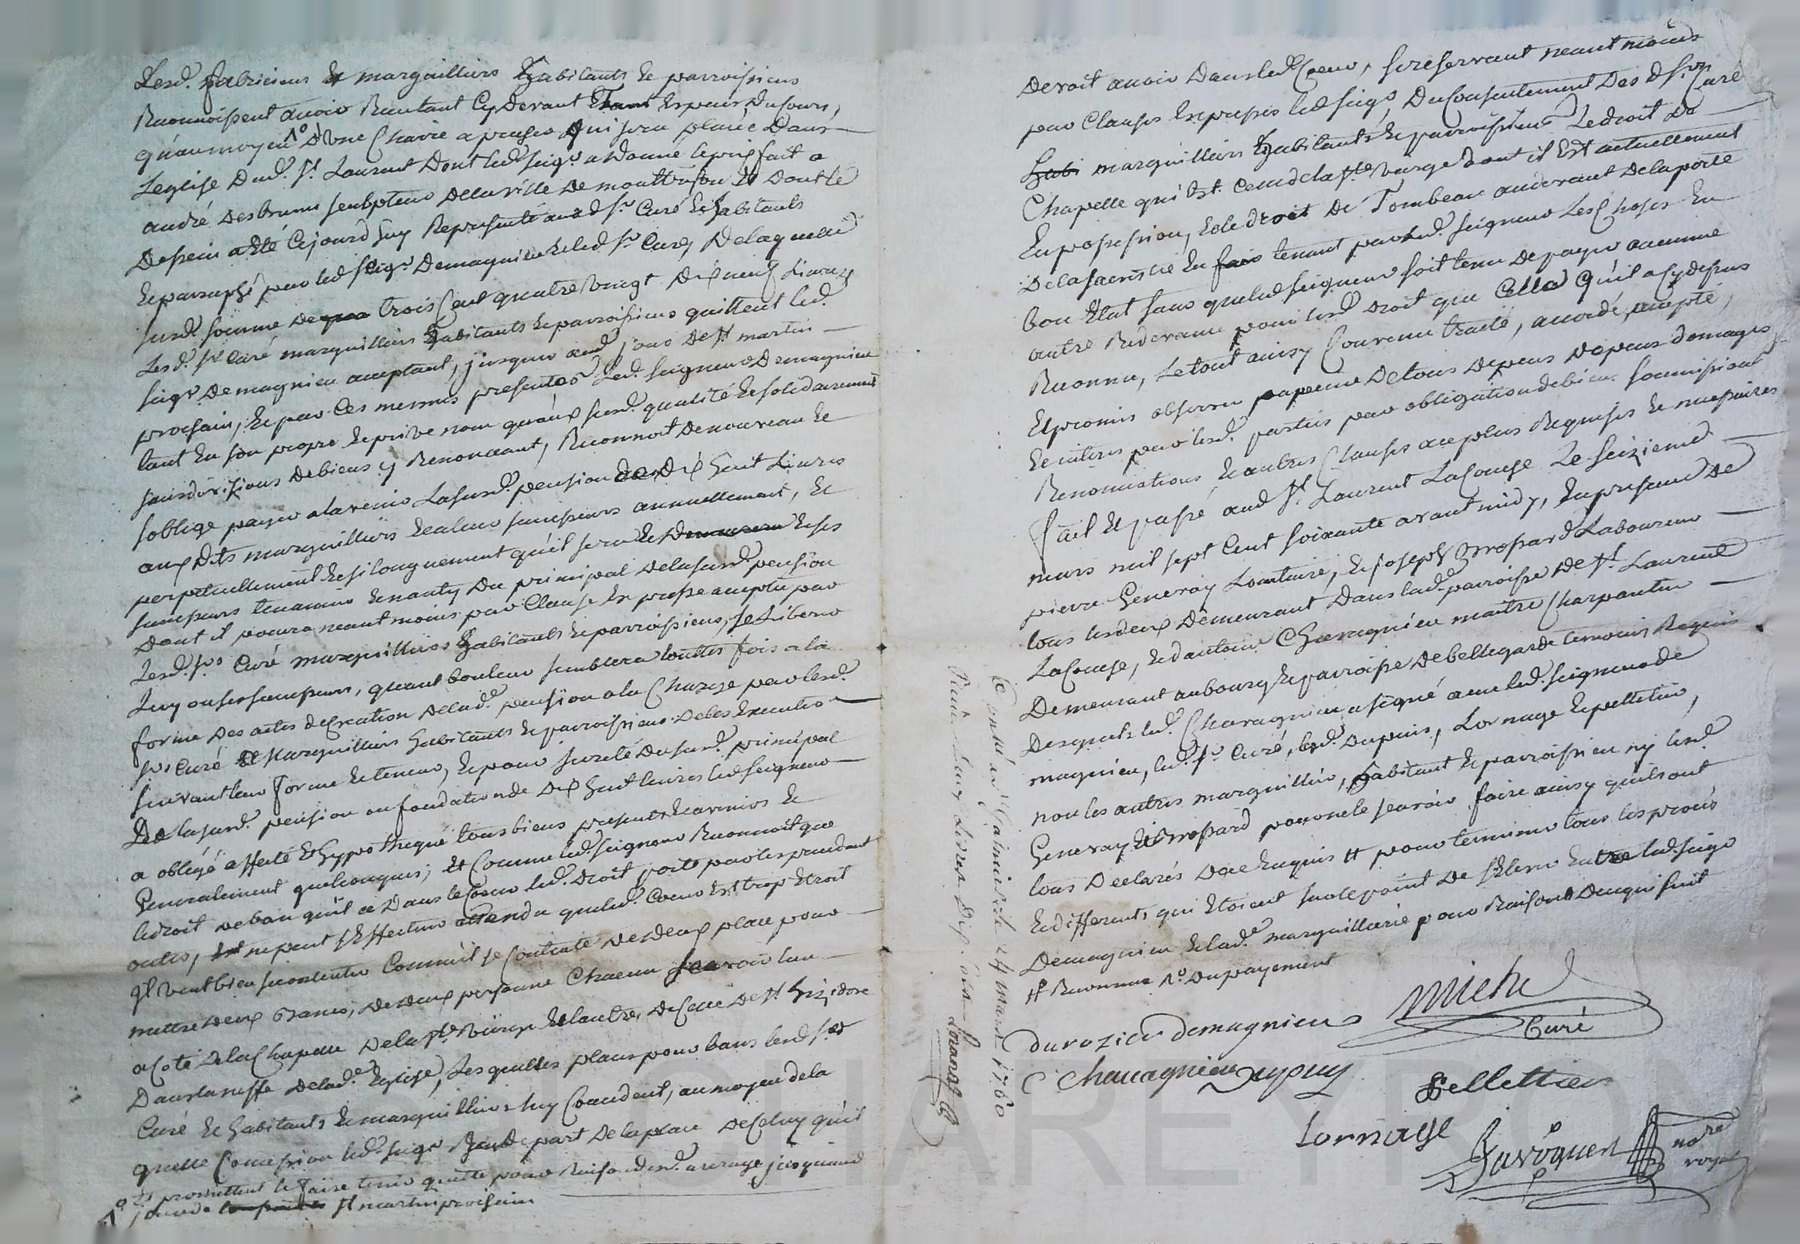 Lesd. fabriciens & margailliers habitants & parroissiens
Reconnoissent avoir Reçu tant Cy devant
qu'au moyen N.º D'une Chaire a precher qui sera placée Dans
Leglise Dud. St. Laurent Dont led seigr a donné le prix fait a
andré Desbruns sculpteur De la ville De montbrison Et Dont le
Dessein a Eté Cejourd'huy Representé aud sr. Curé & habitants
& paraphé par led seigr Demagnieu & led sr Curé, De laquelle
susd. somme De trois Cent quatre vingt Dix neuf Livres
Lesd. sr Curé marguilliers habitants & parroissiens quittent led.
seigr. Demagnieu acceptant, jusques aud jour De St martin
prochain, & par Ces mesmes presentes Led. seigneur Demagnieu
tant En son propre & privé nom qu'aux susd. qualité & solidairement
Biens y Renonceant, Reconnoit De nouveau &
s'oblige payer a l'avenir La susd. pension de Dix huit Livres
aux Dits marguilliers & a leurs successeurs annuellement, &
perpetuellement & si longuement qu'il sera & ses
successeurs tenancier & nanty Du principal De la susd. pension
Dont il poura neantmoins par Clause Expresse acceptée par
Lesd. srs Curé marguilliers habitants & parroissiens, se Liberer
Luy ou ses successeurs, quant bon leur semblera touttes fois a la
forme Des actes de Création De lad. pension a la Charge par lesd.
srs Curé & Marguilliers habitants & parroissiens De les Executer
suivant leur forme & teneur, & pour sureté Du susd. principal
De la susd. pension ou fondation de Dix huit livres led seigneur
a obligé affecté & hyppothequé tous biens presents & avenirs &
Generalement quelconques; Et Comme led. seigneur Reconnoit que
le droit De ban qu'il a Dans le Coeur led. Droit porté par les precedant
actes, ne peut s'Effectuer attendu que led. Coeur Est trop Etroit
Il veut bien se Contenter Comme il se Contente De deux place pour
mettre deux bancs, De deux personne Chacun scavoir l'un
a Coté De la Chapelle De la ste Vierge & l'autre, De Coté De St Izidore
Dans la neffe De lad. Eglise, Les quelles places pour bans lesd. srs
Curé & habitants & marguilliers luy Concedent, au moyen de la
quelle Concession led. seigr se depart De la place De Celuy qu'il
N.º Et promettent le faire tenir quitte pour Raison dud. arrerage jusquaud
jour de St martin prochain
Devoit avoir Dans led. Coeur, se reservant neantmoins
par Clause Expresse led seigr Du Consentement Des d. sr Curé
marguilliers habitants & parroissiens Le droit De
Chapelle qui Est Celle de la ste vierge Dont il Est actuellement
En possession, & le droit De Tombeau au devant De la porte
De la sacristie En tenant par led. seigneur Les Choses En
bon Etat sans que led seigneur soit tenu De payer aucune
autre Redevance pour lesd. Droit que Celle qu'il a Cy dessus
Reconnu, Le tout ainsy Convenu traité, accordé, accepté,
Et promis observer a peine De tous Depens Depens domages
& interis par lesd. parties par obligation de biens soumissions
Renonciations & autres Clauses au plus Requises & necessaires
Fait & passé aud St. Laurent La Conche Le Seizieme
mars mil sept Cent soixante avant midy, En presence De
pierre Genevay Lou, & joseph Brossard Laboureur
tous les deux Demeurant Dans lad. parroisse De St. Laurent
La Conche, & D'antoine Charagnieu maitre Charpentier
Demeurant au bourg & parroisse De bellegarde temoins Requis
Desquels led. Charagnieu a signé avec led. seigneur de
magnieu, led. sr Curé, lesd. Dupuis, Lornage & pelletier,
non les autres marguillier, habitant & parroissien ny lesd.
Genevay & Brossard pour ne le scavoir faire ainsy qu'ils ont
tous Declarés De ce Enquis # pour terminer tous les procès
& differents qui Etoient sur le point De s'Elever Entre led. seigr
Demagnieu & lad. marguillerie pour Raison De ce qui suit
# Reconnu N.º Du payement
Michel
Curé
durozier demagnieu
C Charagnieu Dupuy
Pelletier
Lornage
nore
royal
Controllé a le 24 mars 1760